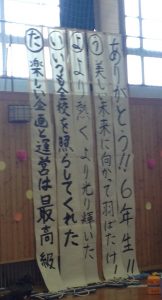 ありがとう!!6年生!!
う美しい未来に向かって羽ばたけ!
よより熱くより光り輝いた
いいつも全校を照らしてくれた
た楽しい企画と運営は最高級!